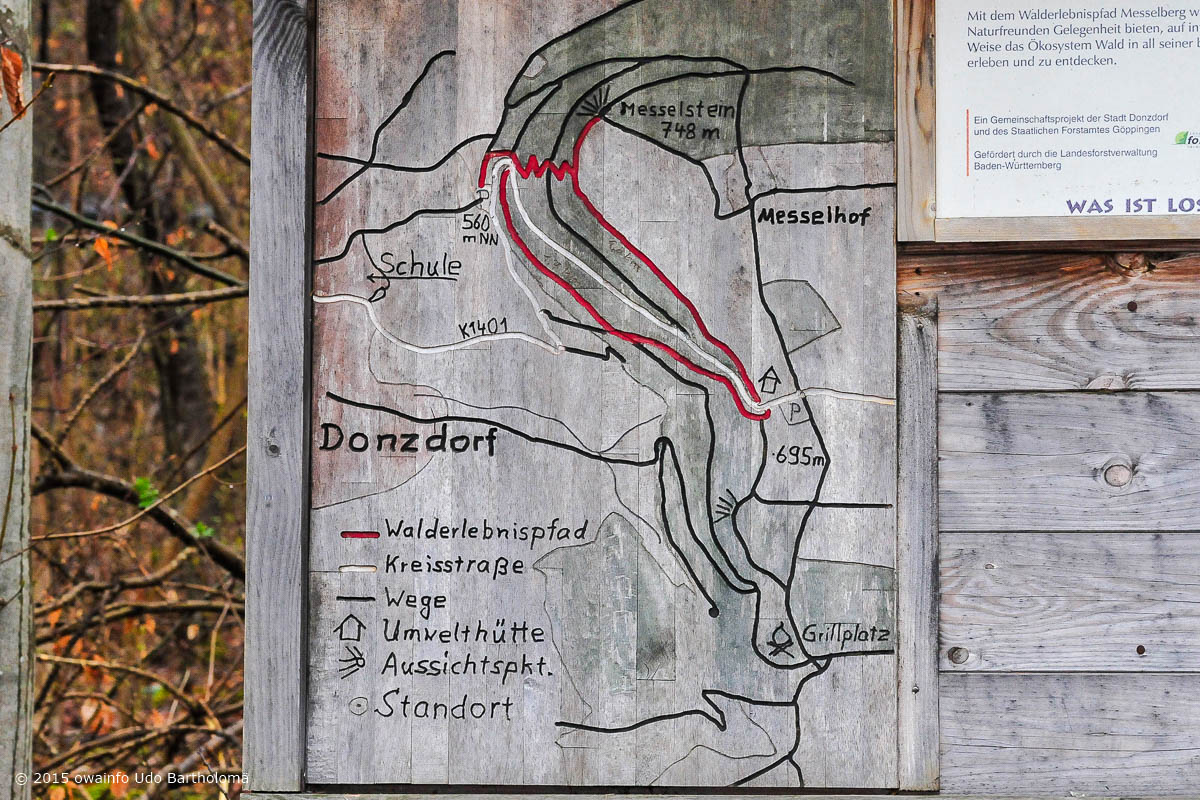 Mit dem Walderlebnispfad Messelberg w
Naturfreunden Gelegenheit bieten, auf in
Weise das Ökosystem Wald in all seiner
erleben und zu entdecken.
Ein Gemeinschaftsprojekt der Stadt Donzdorf
und des Staatlichen Forstamtes Göppingen
Gefördert durch die Landesforstverwaltung
Baden-Württemberg
fo
WAS IST LOS
Messelstein
748 m
Messelhof
P
560
m NN
Schule
K1401
P
695m
Donzdorf
Walderlebnispfad
Kreisstraße
Wege
Umwelthütte
Aussichtspkt.
Standort
Grillplatz
© 2015 owainfo Udo Bartholomä